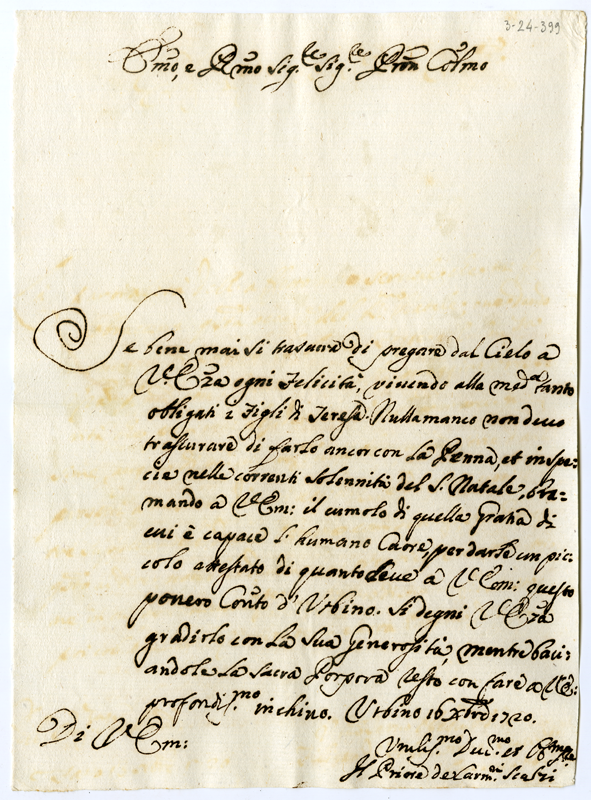 3-24-399
Emo, e Rmo Sig.re Sig.re Prōn Colmo
Se bene mai si trascura di pregare dal Cielo a
V.Eza ogni Felicità, vivendo alla meda tanto
obligati i Figli di Teresa. Nullamanco non devo
trascurare di farlo ancor con la Penna, et inspe-
cie nelle correnti solennità del S. Natale, bra-
mando a V.Em: il cumolo di quella Gratia di
cui è capace l'humano Cuore, per darle un pic-
colo attestato di quanto deve a V.Em: questo
povero Conto d'Urbino. Si degni V.Eza
gradirlo con la sua Generosità, mentre baci-
andole la sacra Porpora resto con fare a V.E:
profondis.mo inchino. Urbino 16 Xbre 1720.
Di V.Em:
Umilis.mo Dev.mo et
Il Priore de Carm.ni Scalzi